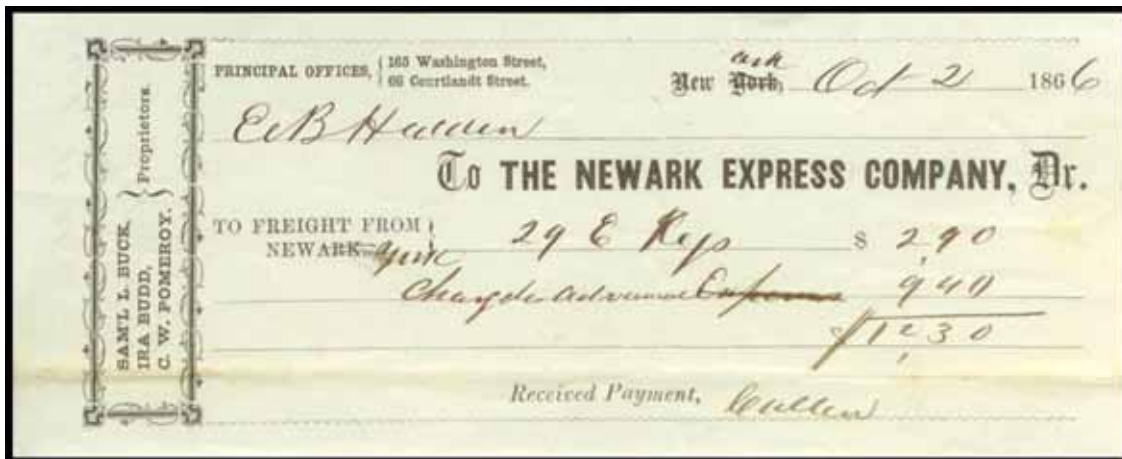 SAM'L L. BUCK,
IRA BUDD,
C. W. POMEROY.
Proprietors.
PRINCIPAL OFFICES,
165 Washington Street,
66 Courtlandt Street.
ark
New York, Oct 2 1866
E B Hedden
To THE NEWARK EXPRESS COMPANY, Dr.
TO FREIGHT FROM
NEWARK York 29 E Kegs $ 2,90
Charges advanced 9 40
$12,30
Received Payment, Cullen